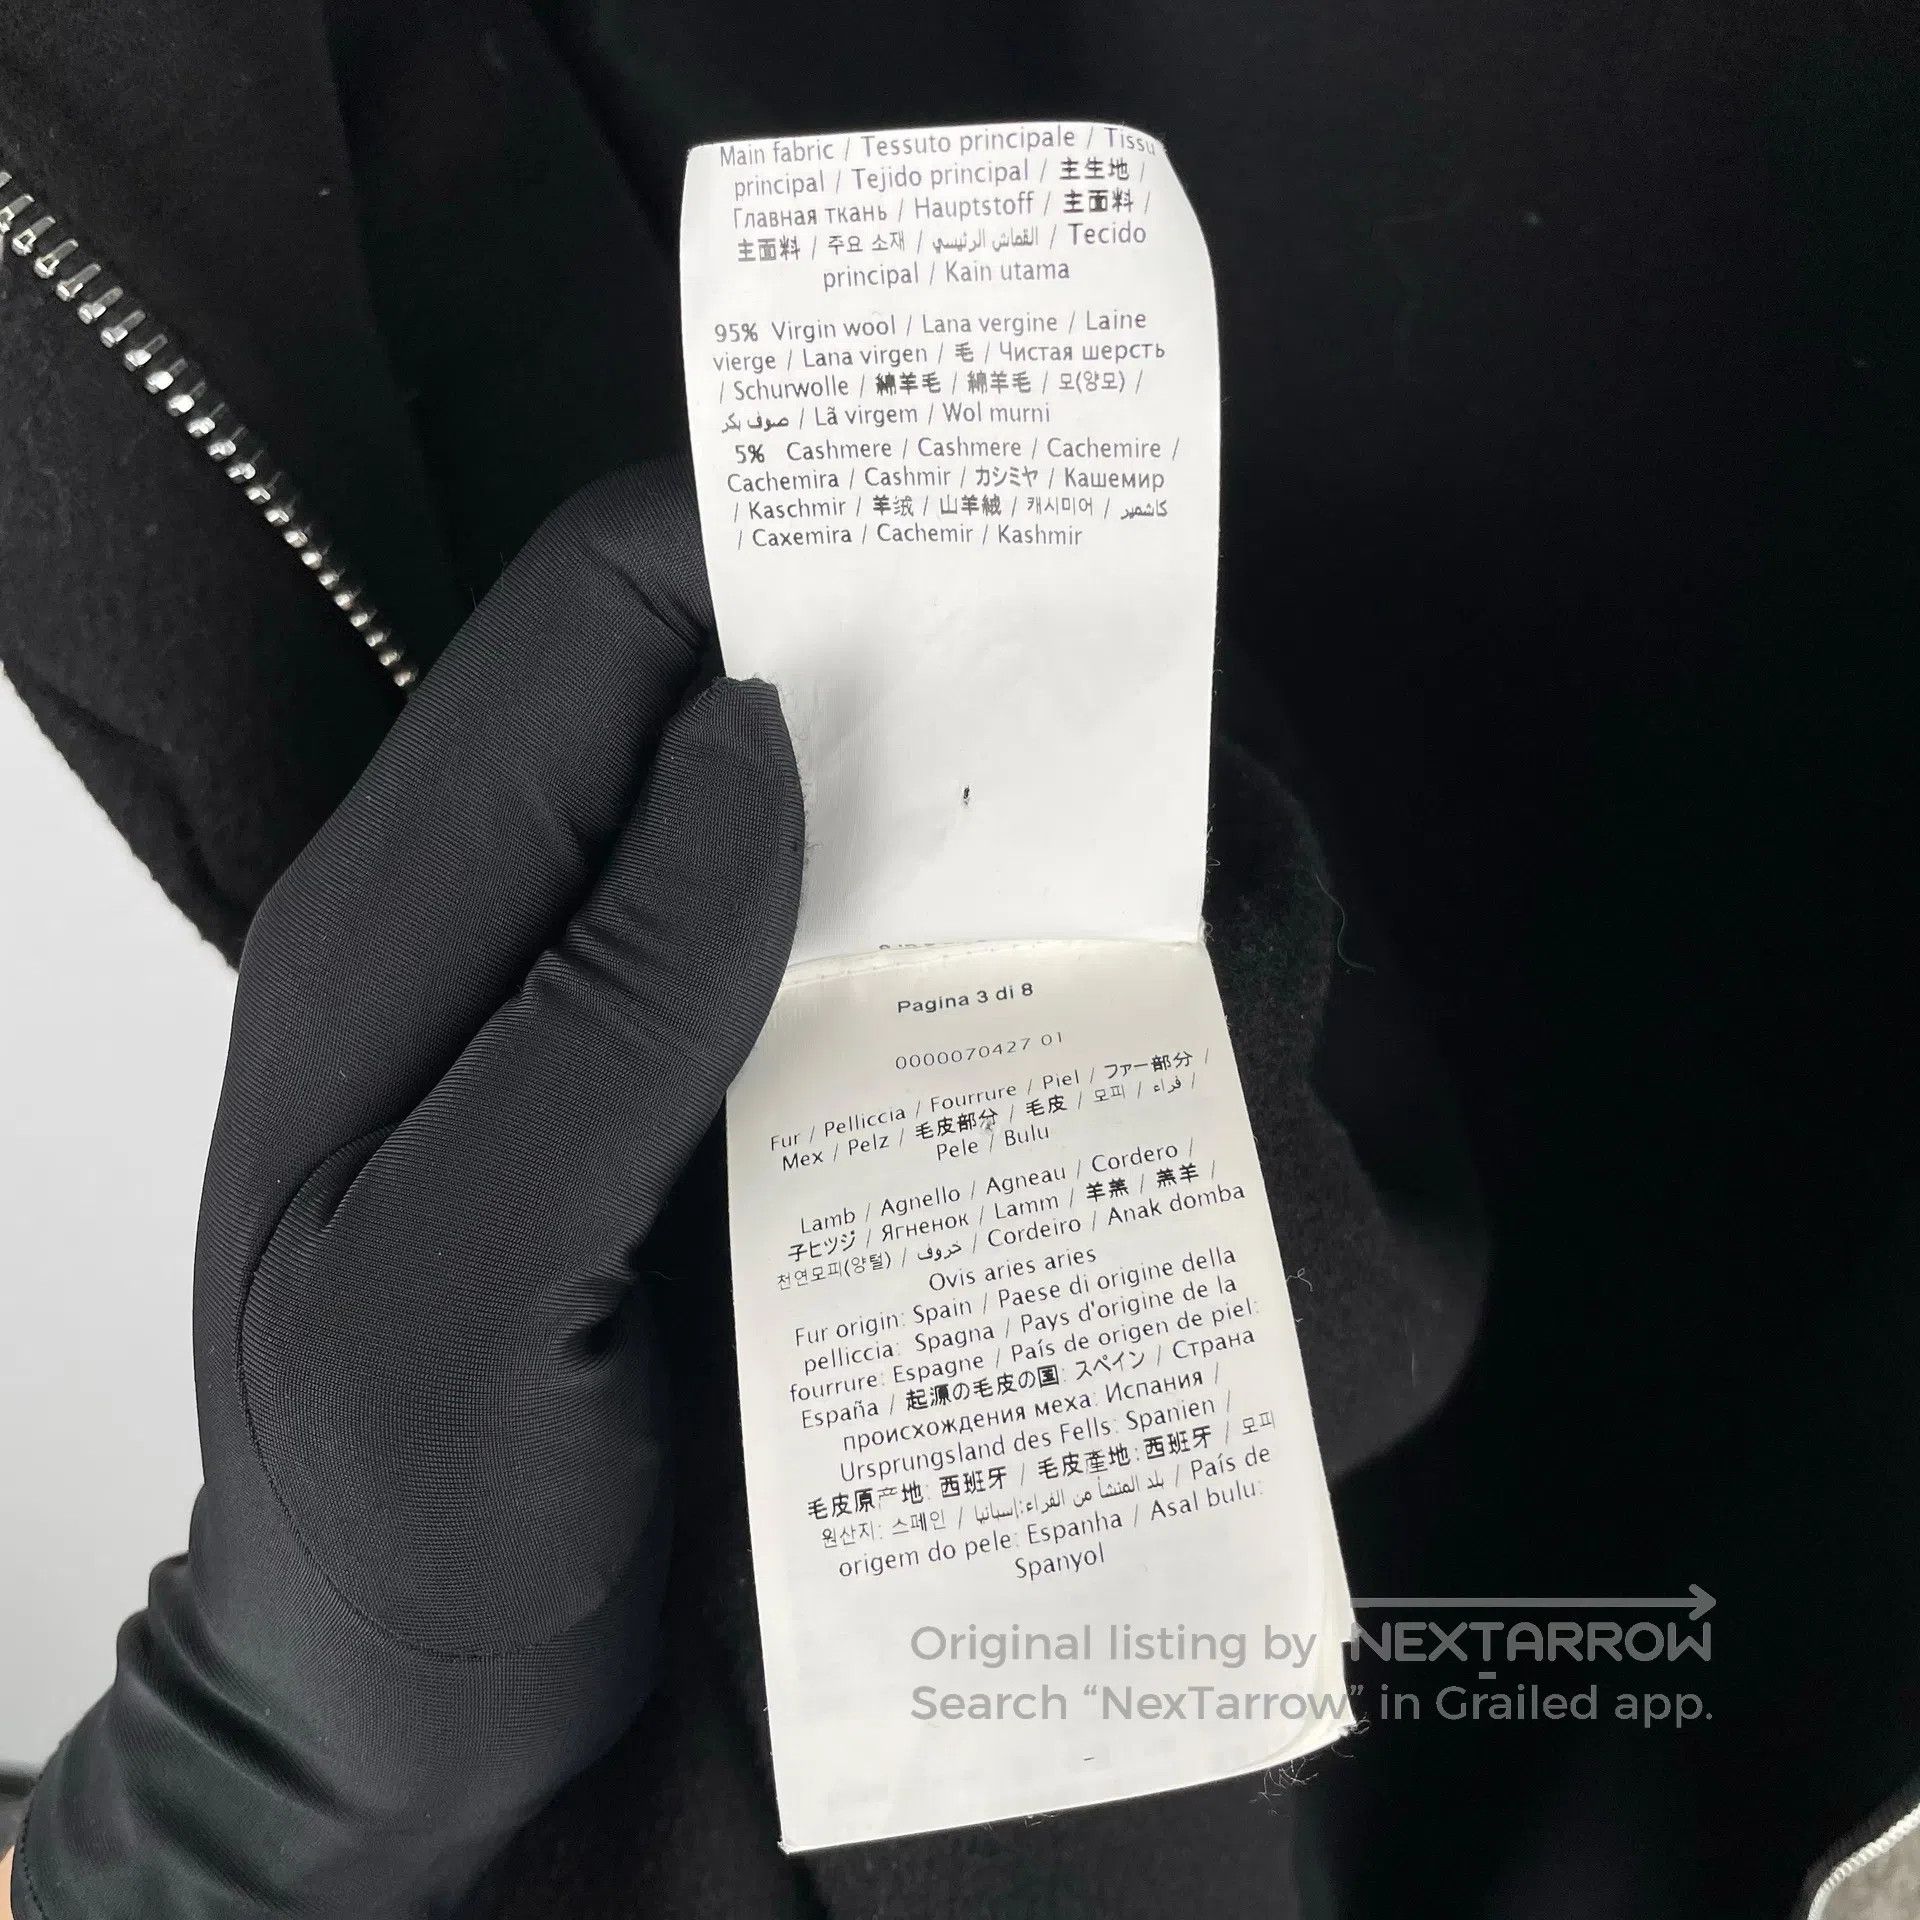 Main fabric / Tessuto principale / Tissu
principal / Tejido principal / 主生地 /
Главная ткань / Hauptstoff / 主面料 /
主面料 / 주요 소재 / القماش الرئيسي / Tecido
principal / Kain utama
95% Virgin wool / Lana vergine / Laine
vierge / Lana virgen / 毛 / Чистая шерсть
/ Schurwolle / 綿羊毛 / 綿羊毛 / 모(양모) /
صوف بكر / Lã virgem / Wol murni
5% Cashmere / Cashmere / Cachemire /
Cachemira / Cashmir / カシミヤ / Кашемир
/ Kaschmir / 羊绒 / 山羊絨 / 캐시미어 / كاشمير
/ Caxemira / Cachemir / Kashmir
Pagina 3 di 8
0000070427 01
Fur / Pelliccia / Fourrure / Piel / ファー部分 /
Mex / Pelz / 毛皮部分 / 毛皮 / 모피 / فراء /
Pele / Bulu
Lamb / Agnello / Agneau / Cordero /
子ヒツジ / Ягненок / Lamm / 羊羔 / 羔羊 /
천연모피(양털) / خروف / Cordeiro / Anak domba
Ovis aries aries
Fur origin: Spain / Paese di origine della
pelliccia: Spagna / Pays d'origine de la
fourrure: Espagne / País de origen de piel:
España / 起源の毛皮の国: スペイン / Страна
происхождения меха: Испания /
Ursprungsland des Fells: Spanien /
毛皮原产地: 西班牙 / 毛皮產地: 西班牙 / 모피
원산지: 스페인 / بلد المنشأ من الفراء:إسبانيا / País de
origem do pele: Espanha / Asal bulu:
Spanyol
Original listing by NEXTARROW
Search “NexTarrow” in Grailed app.